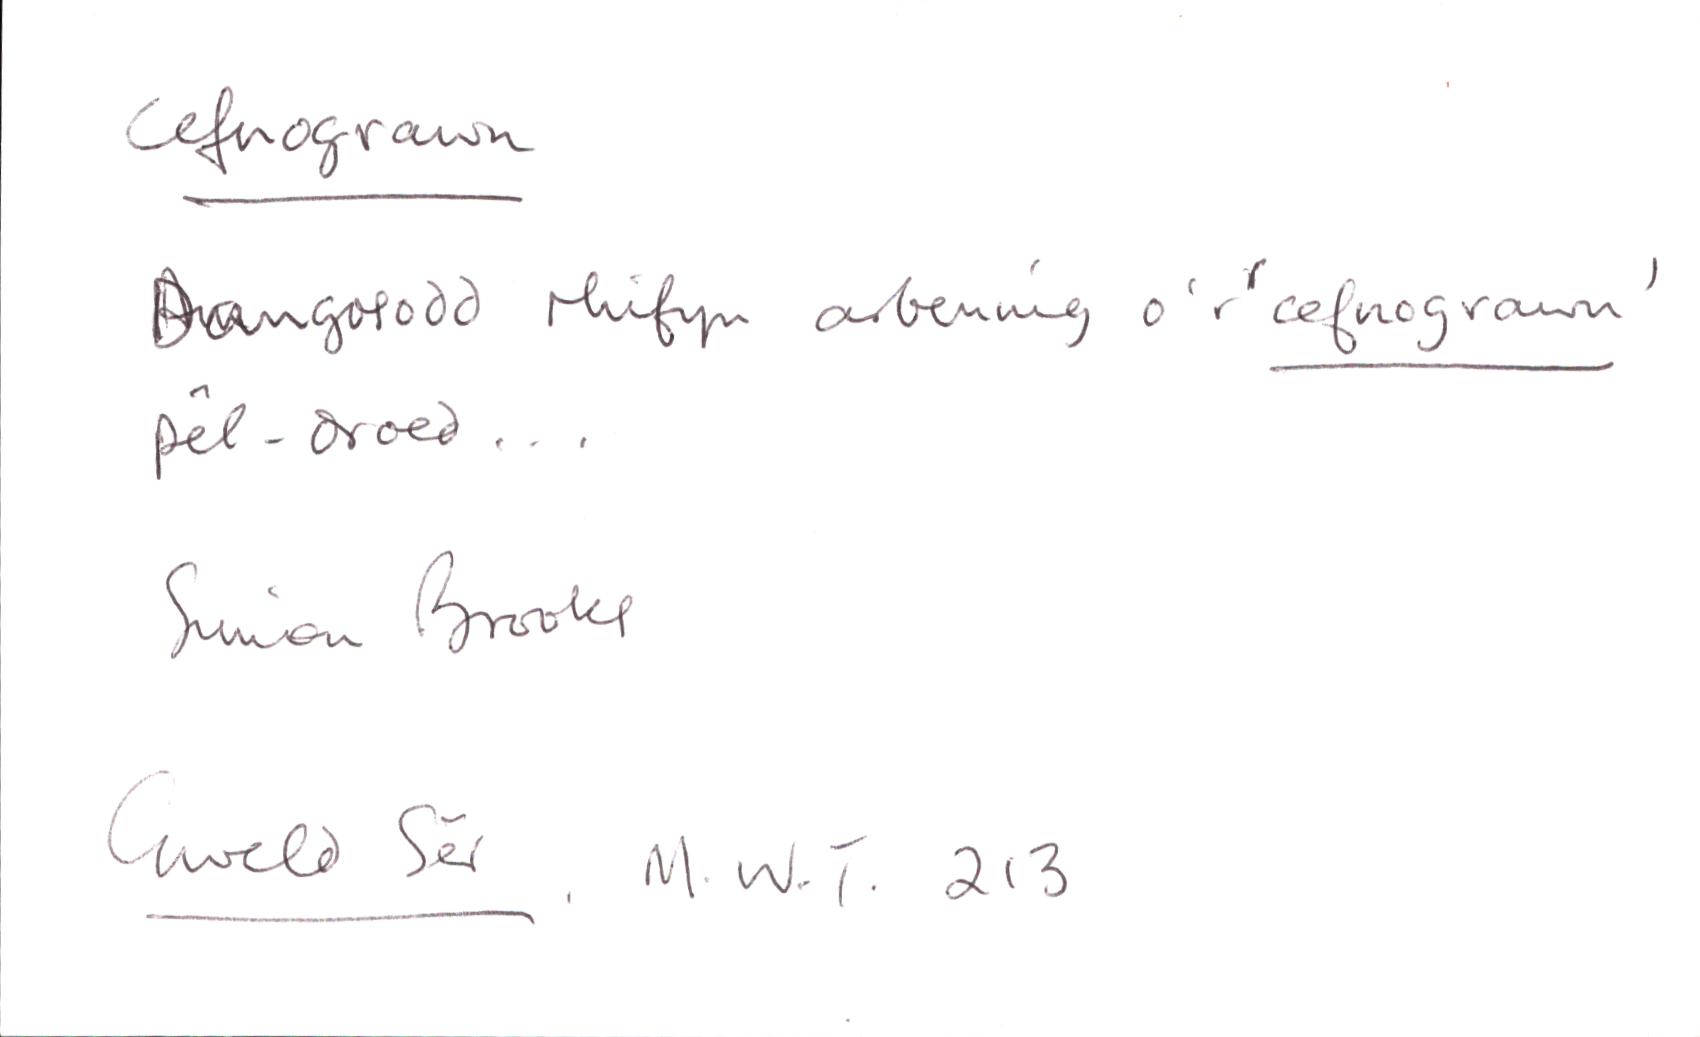 Cefnograwn
Dangosodd rhifyn arbennig o'r 'cefnograwn'
pêl-droed...
Simon Brooks
Gweld Sêr, M.W.T. 213